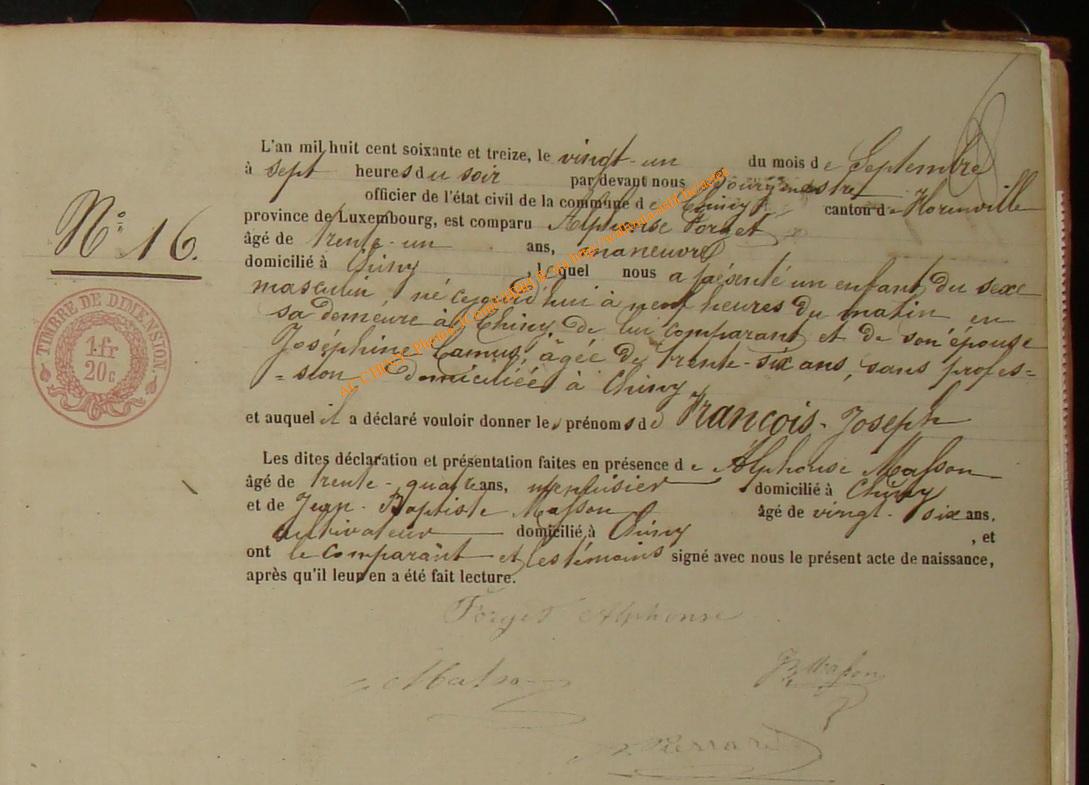 L'an mil huit cent soixante et treize, le vingt-un du mois de Septembre
à sept heures du soir par devant nous Bourgmestre
officier de l'état civil de la commune de Chiny canton de Florenville
province de Luxembourg, est comparu Alphonse Forget
âgé de trente-un ans, maneuvre
domicilié à Chiny, lequel nous a présenté un enfant du sexe
masculin, né cejourd'hui à neuf heures du matin en
sa demeure à Chiny, de lui comparant et de son épouse
Joséphine Camus, âgée de trente-six ans, sans profes=
=sion domiciliée à Chiny
et auquel il a déclaré vouloir donner les prénoms de François-Joseph
Les dites déclaration et présentation faites en présence de Alphonse Masson
âgé de trente-quatre ans, menuisier domicilié à Chiny
et de Jean-Baptiste Masson âgé de vingt-six ans,
cultivateur domicilié à Chiny, et
ont le comparant et les témoins signé avec nous le présent acte de naissance,
après qu'il leur en a été fait lecture.
N° 16.
TIMBRE DE DIMENSION
1 fr
20 c
Forget Alphonse
Masson
JB Masson